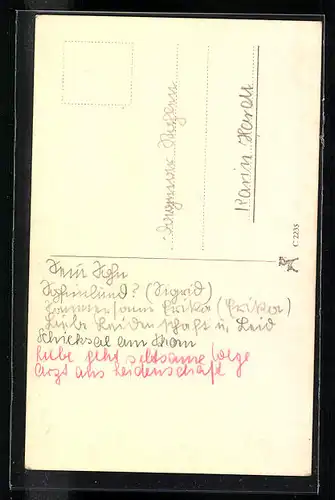 Karin Hardt
C 2235
Sein Sohn
(Sigrid)
Sommer Sonne Erika (Erika)
Liebe Leidenschaft u. Leid
Schicksal am Strom
Liebe geht seltsame Wege
Arzt aus Leidenschaft